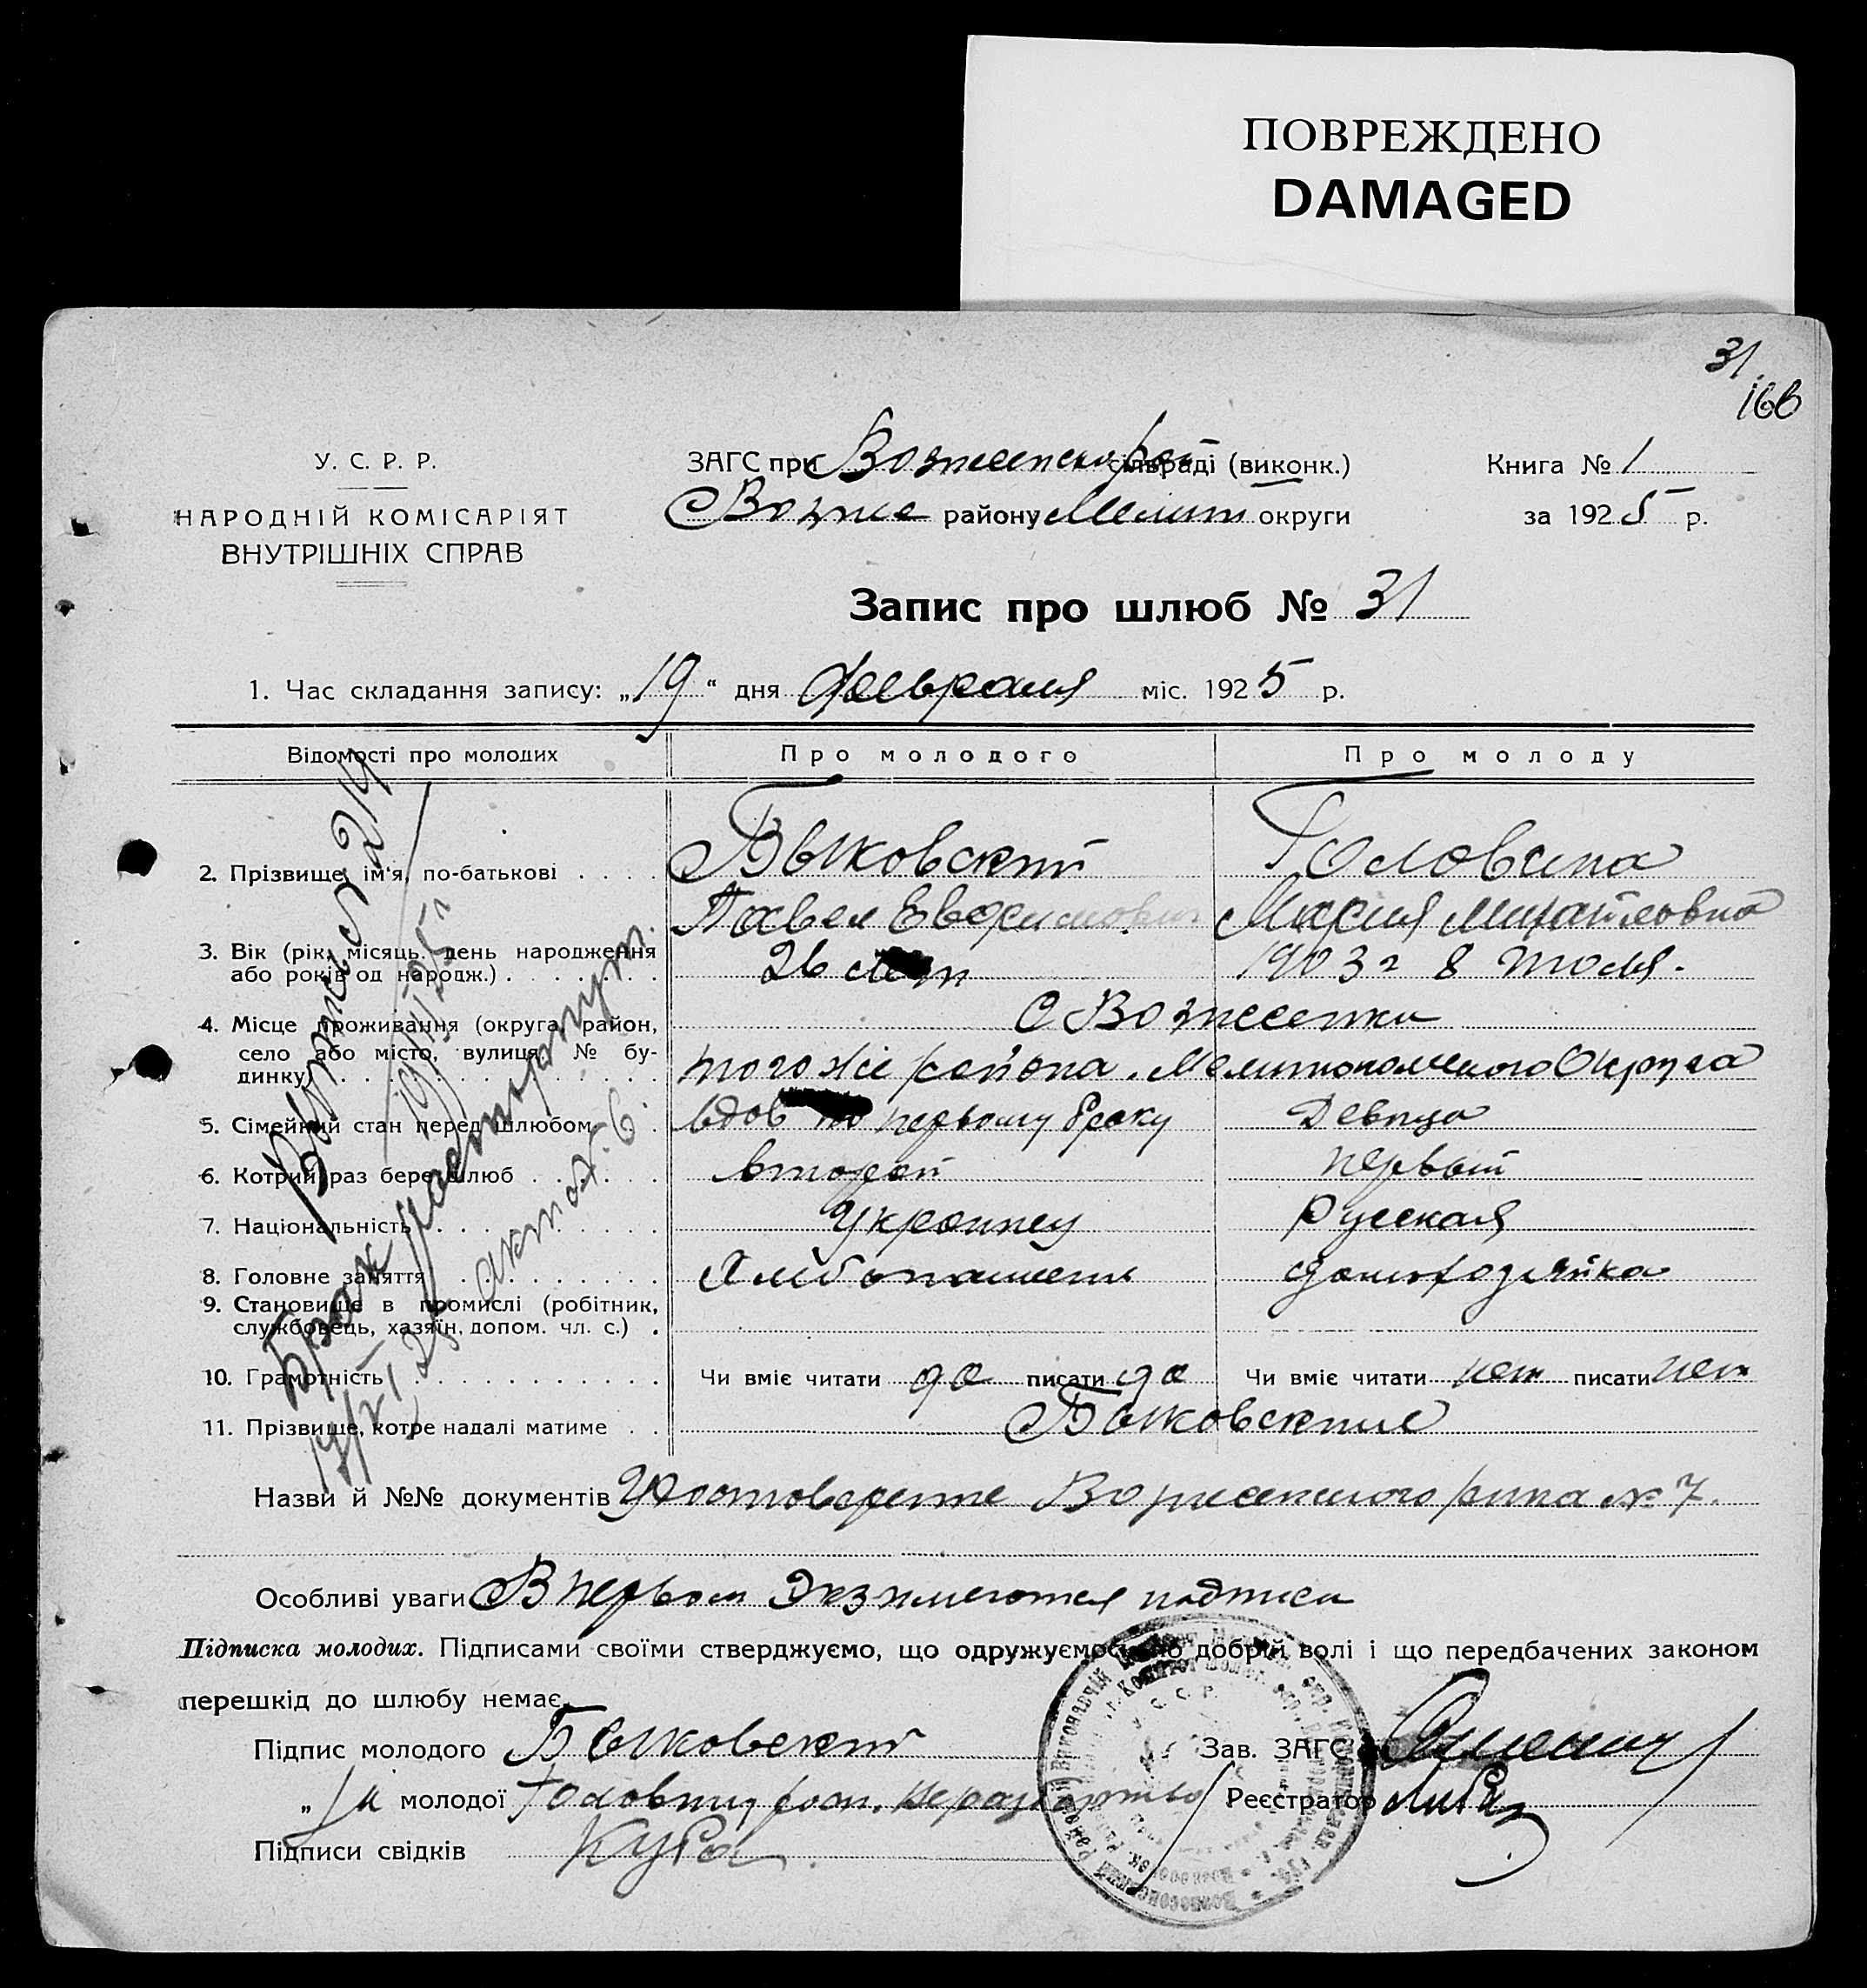 ПОВРЕЖДЕНО
DAMAGED
31
166
У. С. Р. Р.
НАРОДНІЙ КОМІСАРІЯТ
ВНУТРІШНІХ СПРАВ
ЗАГС при сільраді (виконк.)
Возне району Мелит округи
Книга № 1
за 1925 р.
Запис про шлюб № 31
1. Час складання запису: „19“ дня февраля міс. 1925 р.
Відомості про молодих
Про молодого
Про молоду
2. Прізвище, ім'я, по-батькові
Быковский
Головина
Павел
Мария Михайловна
3. Вік (рік, місяць, день народження
або років од народж.)
26 лет
1903 г 8 Июля.
4. Місце проживання (округа, район,
село або місто, вулиця, № бу-
динку)
С Вознесенки
того же района. Мелитопольского Округа
5. Сімейний стан перед шлюбом
вдов по первому браку
Девица
6. Котрий раз бере шлюб
второй
первый
7. Національність
Украинец
Русская
8. Головне заняття
Хлебопашень
домохозяйка
9. Становище в промислі (робітник,
службовець, хазяїн, допом. чл. с.)
10. Грамотність
Чи вміє читати да писати да
Чи вміє читати нет писати нет
11. Прізвище, котре надалі матиме
Быковские
Назви й №№ документів Удостоверение Вознесенского рика № 7.
Особливі уваги В первом Экз имеются подписи
Підписка молодих. Підписами своїми стверджуємо, що одружуємось по добрій волі і що передбачених законом
перешкід до шлюбу немає.
Підпис молодого Быковский
Зав. ЗАГС
„ молодої
Реєстратор
Підписи свідків
Брак расторгнут.